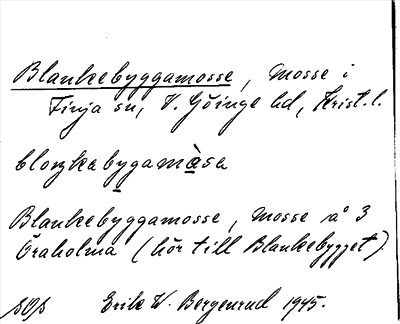 Blankebyggamosse, mosse i
Finja sn, V. Göinge hd, Krist. l.
bloŋkabygamàsa
Blankebyggamosse, mosse å 3
Öraholma (hör till Blankebygget)
Erik W. Bergenrud 1945.